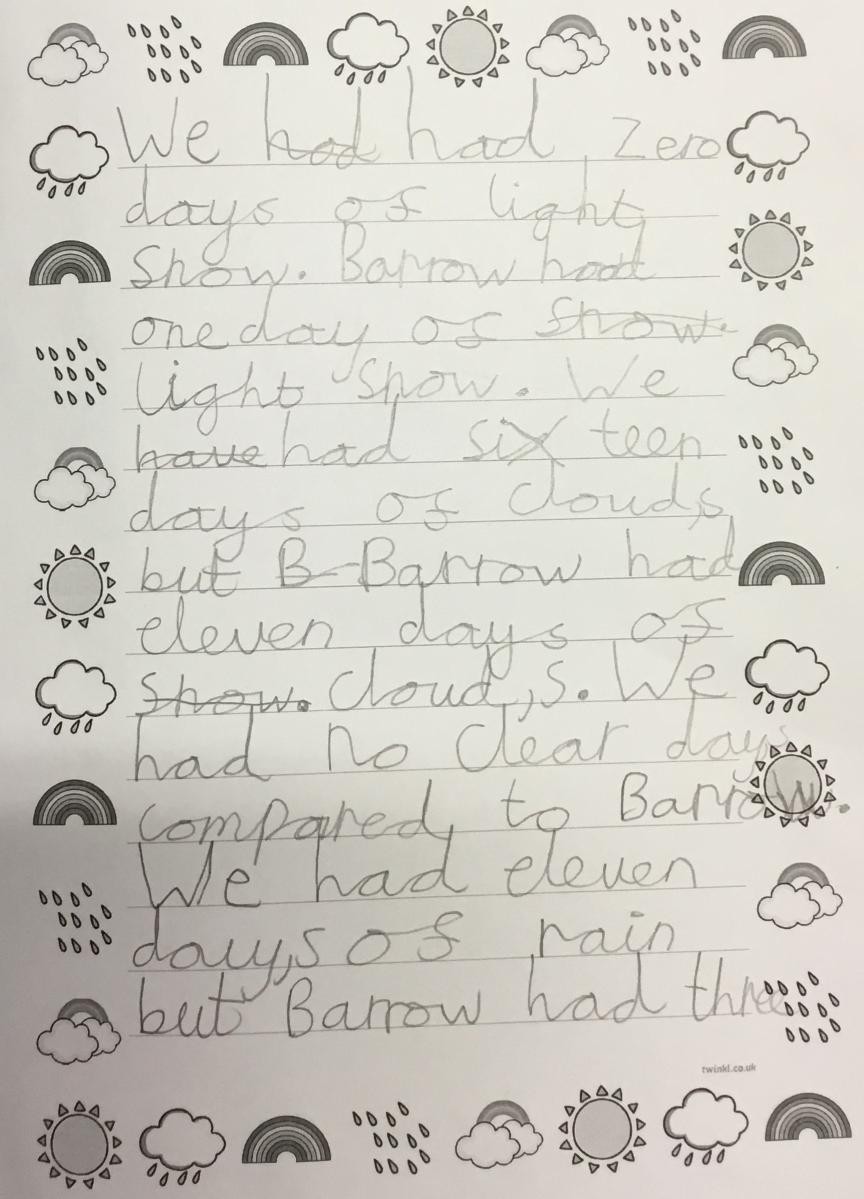 We had had Zero
days of light
Snow. Barrow had
one day of Snow.
light Snow. We
have had six teen
days of clouds
but B-Barrow had
eleven days of
Snow. Clouds. We
had no Clear days
compared to Barrow.
We had eleven
days of rain
but Barrow had three
twinkl.co.uk